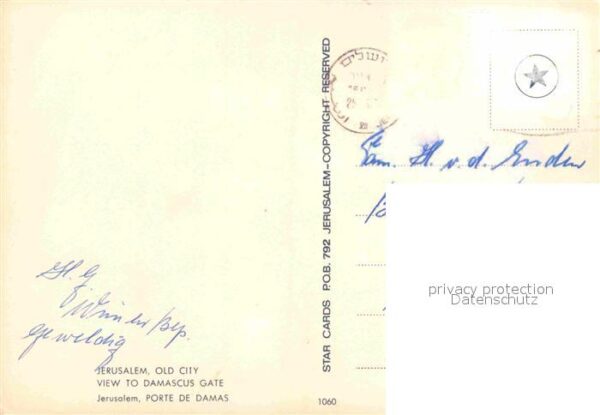 H. G.
geweldig
JERUSALEM, OLD CITY
VIEW TO DAMASCUS GATE
Jerusalem, PORTE DE DAMAS
STAR CARDS P.O.B. 792 JERUSALEM-COPYRIGHT RESERVED
1060
ירושלים
Fam. H. v. d. Enden
privacy protection
Datenschutz